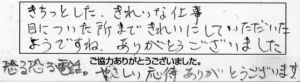 きちっとした、きれいな仕事
目についた所まできれいにしていただいた
ようですね。ありがとうございました
ご協力ありがとうございました。
恐る恐る電話。やさしい応待ありがとうございます